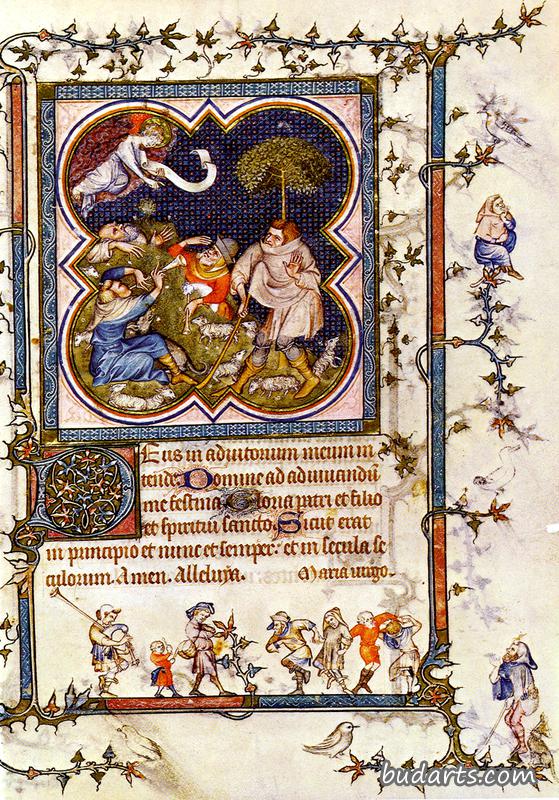 Deus in adiutorium meum in
tende. Domine ad adiuuandū
me festina. Gloria patri et filio
et spiritui sancto. Sicut erat
in principio et nunc et semper: et in secula se
culorum. Amen. Alleluya. Maria uirgo.
budarts.com